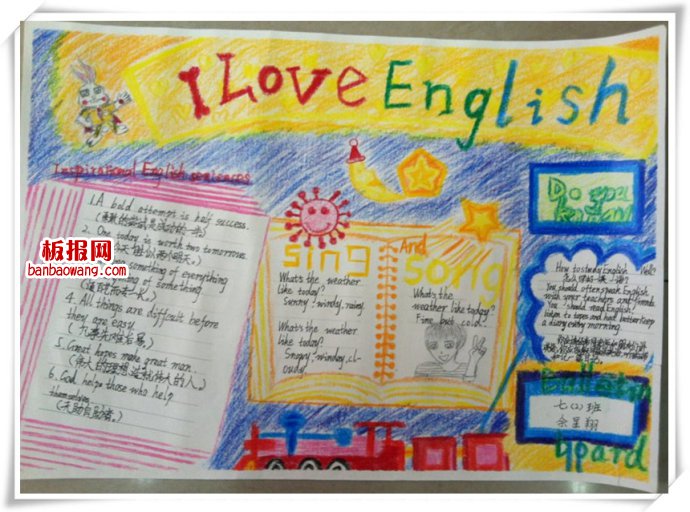 I Love English
Inspirational English sentences
1.A bold attempt is half success.
(勇敢的尝试是成功的一半)
2. One today is worth two tomorrow
something of everything
of something
4. All things are difficult before
they are easy.
(凡事先难后易。)
5.Great hopes make great man.
(伟大的理想造就伟大的人。)
6.God helps those who help
themselves
(天助自助者。)
板报网
banbaowang.com
sing And song
What's the weather
like today?
Sunny! windy, rainy
What's the weather
like today?
Snowy! windy, cl-
oudy
What's the
weather like today?
Fine but cold.
Do you
How to study English well?
You should often speak English
with your teachers and friends
You should read English,
listen to tapes and had better keep
a diary every morning.
七(2)班
余星翔
board